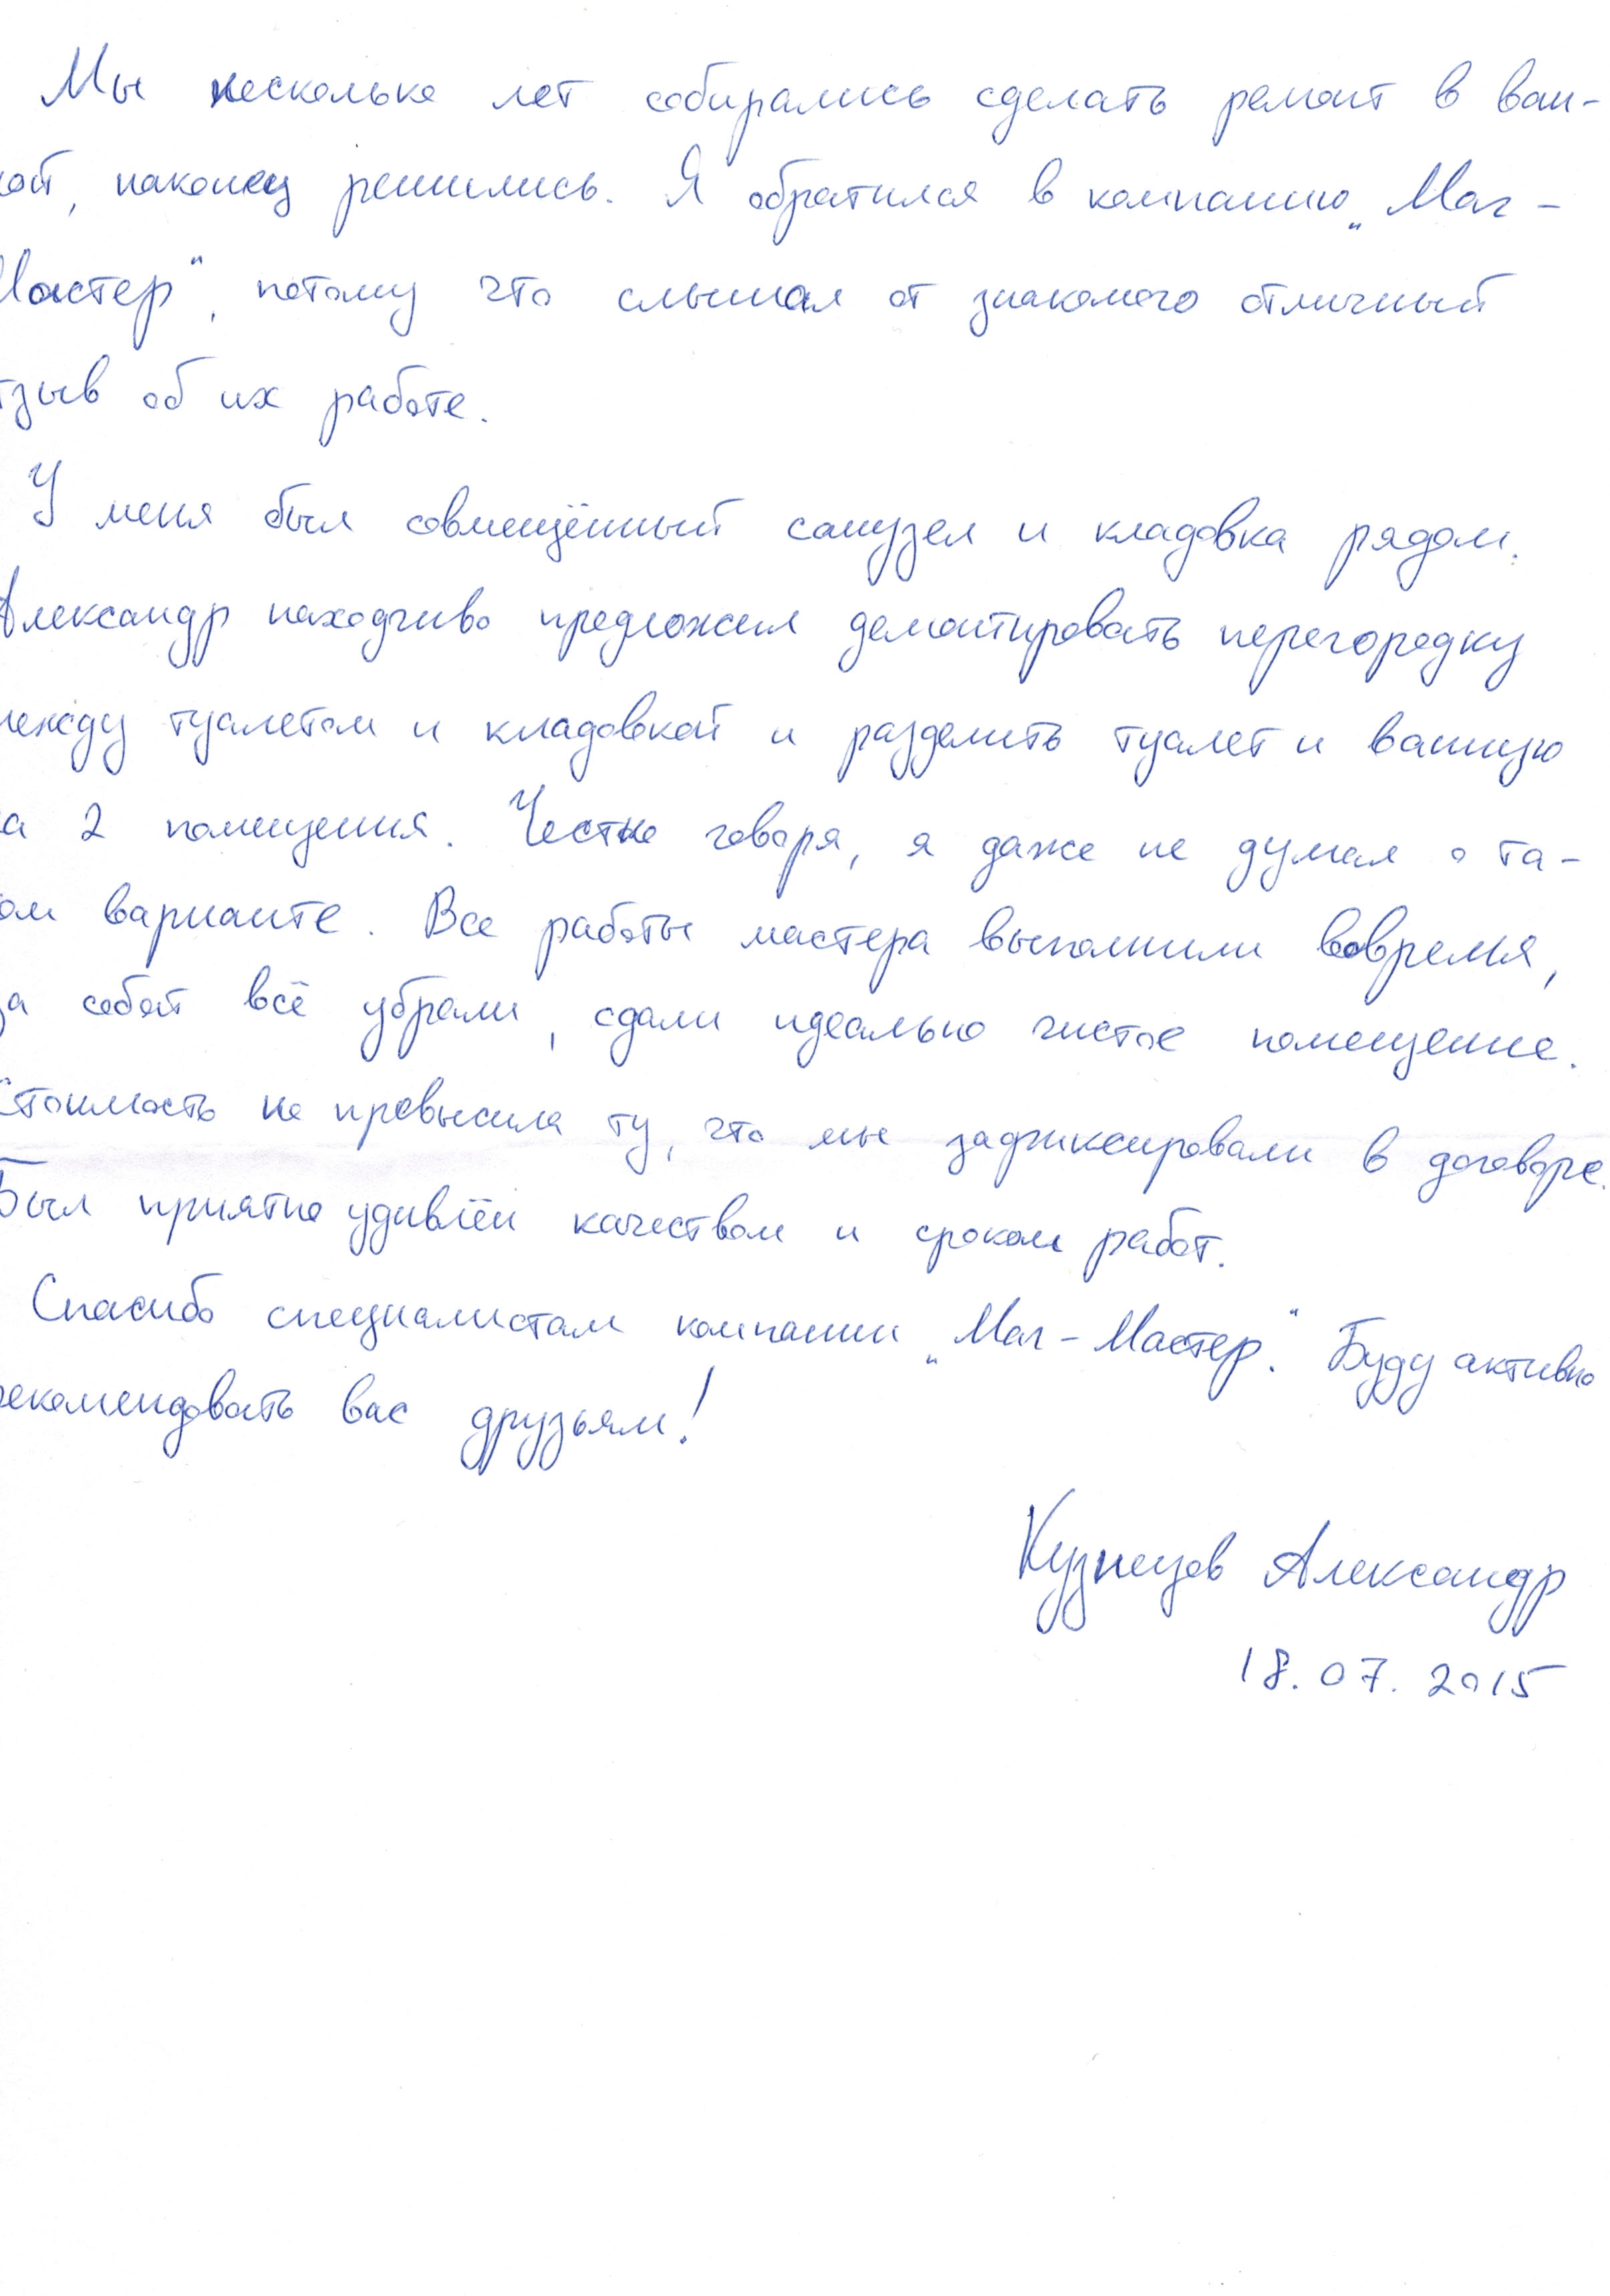 Мы несколько лет собирались сделать ремонт в ван-
ной, наконец решились. Я обратился в компанию „Маг-
Мастер“, потому что слышал от знакомого отличный
тзыв об их работе.
У меня был совмещённый санузел и кладовка рядом.
Александр находчиво предложил демонтировать перегородку
между туалетом и кладовкой и разделить туалет и ванную
а 2 помещения. Честно говоря, я даже не думал о та-
ом варианте. Все работы мастера выполнили вовремя,
за собой всё убрали, сдали идеально чистое помещение.
Стоимость не превысила ту, что мы зафиксировали в договоре.
Был приятно удивлён качеством и сроком работ.
Спасибо специалистам компании „Маг-Мастер“. Буду активно
рекомендовать вас друзьям!
Кузнецов Александр
18.07.2015